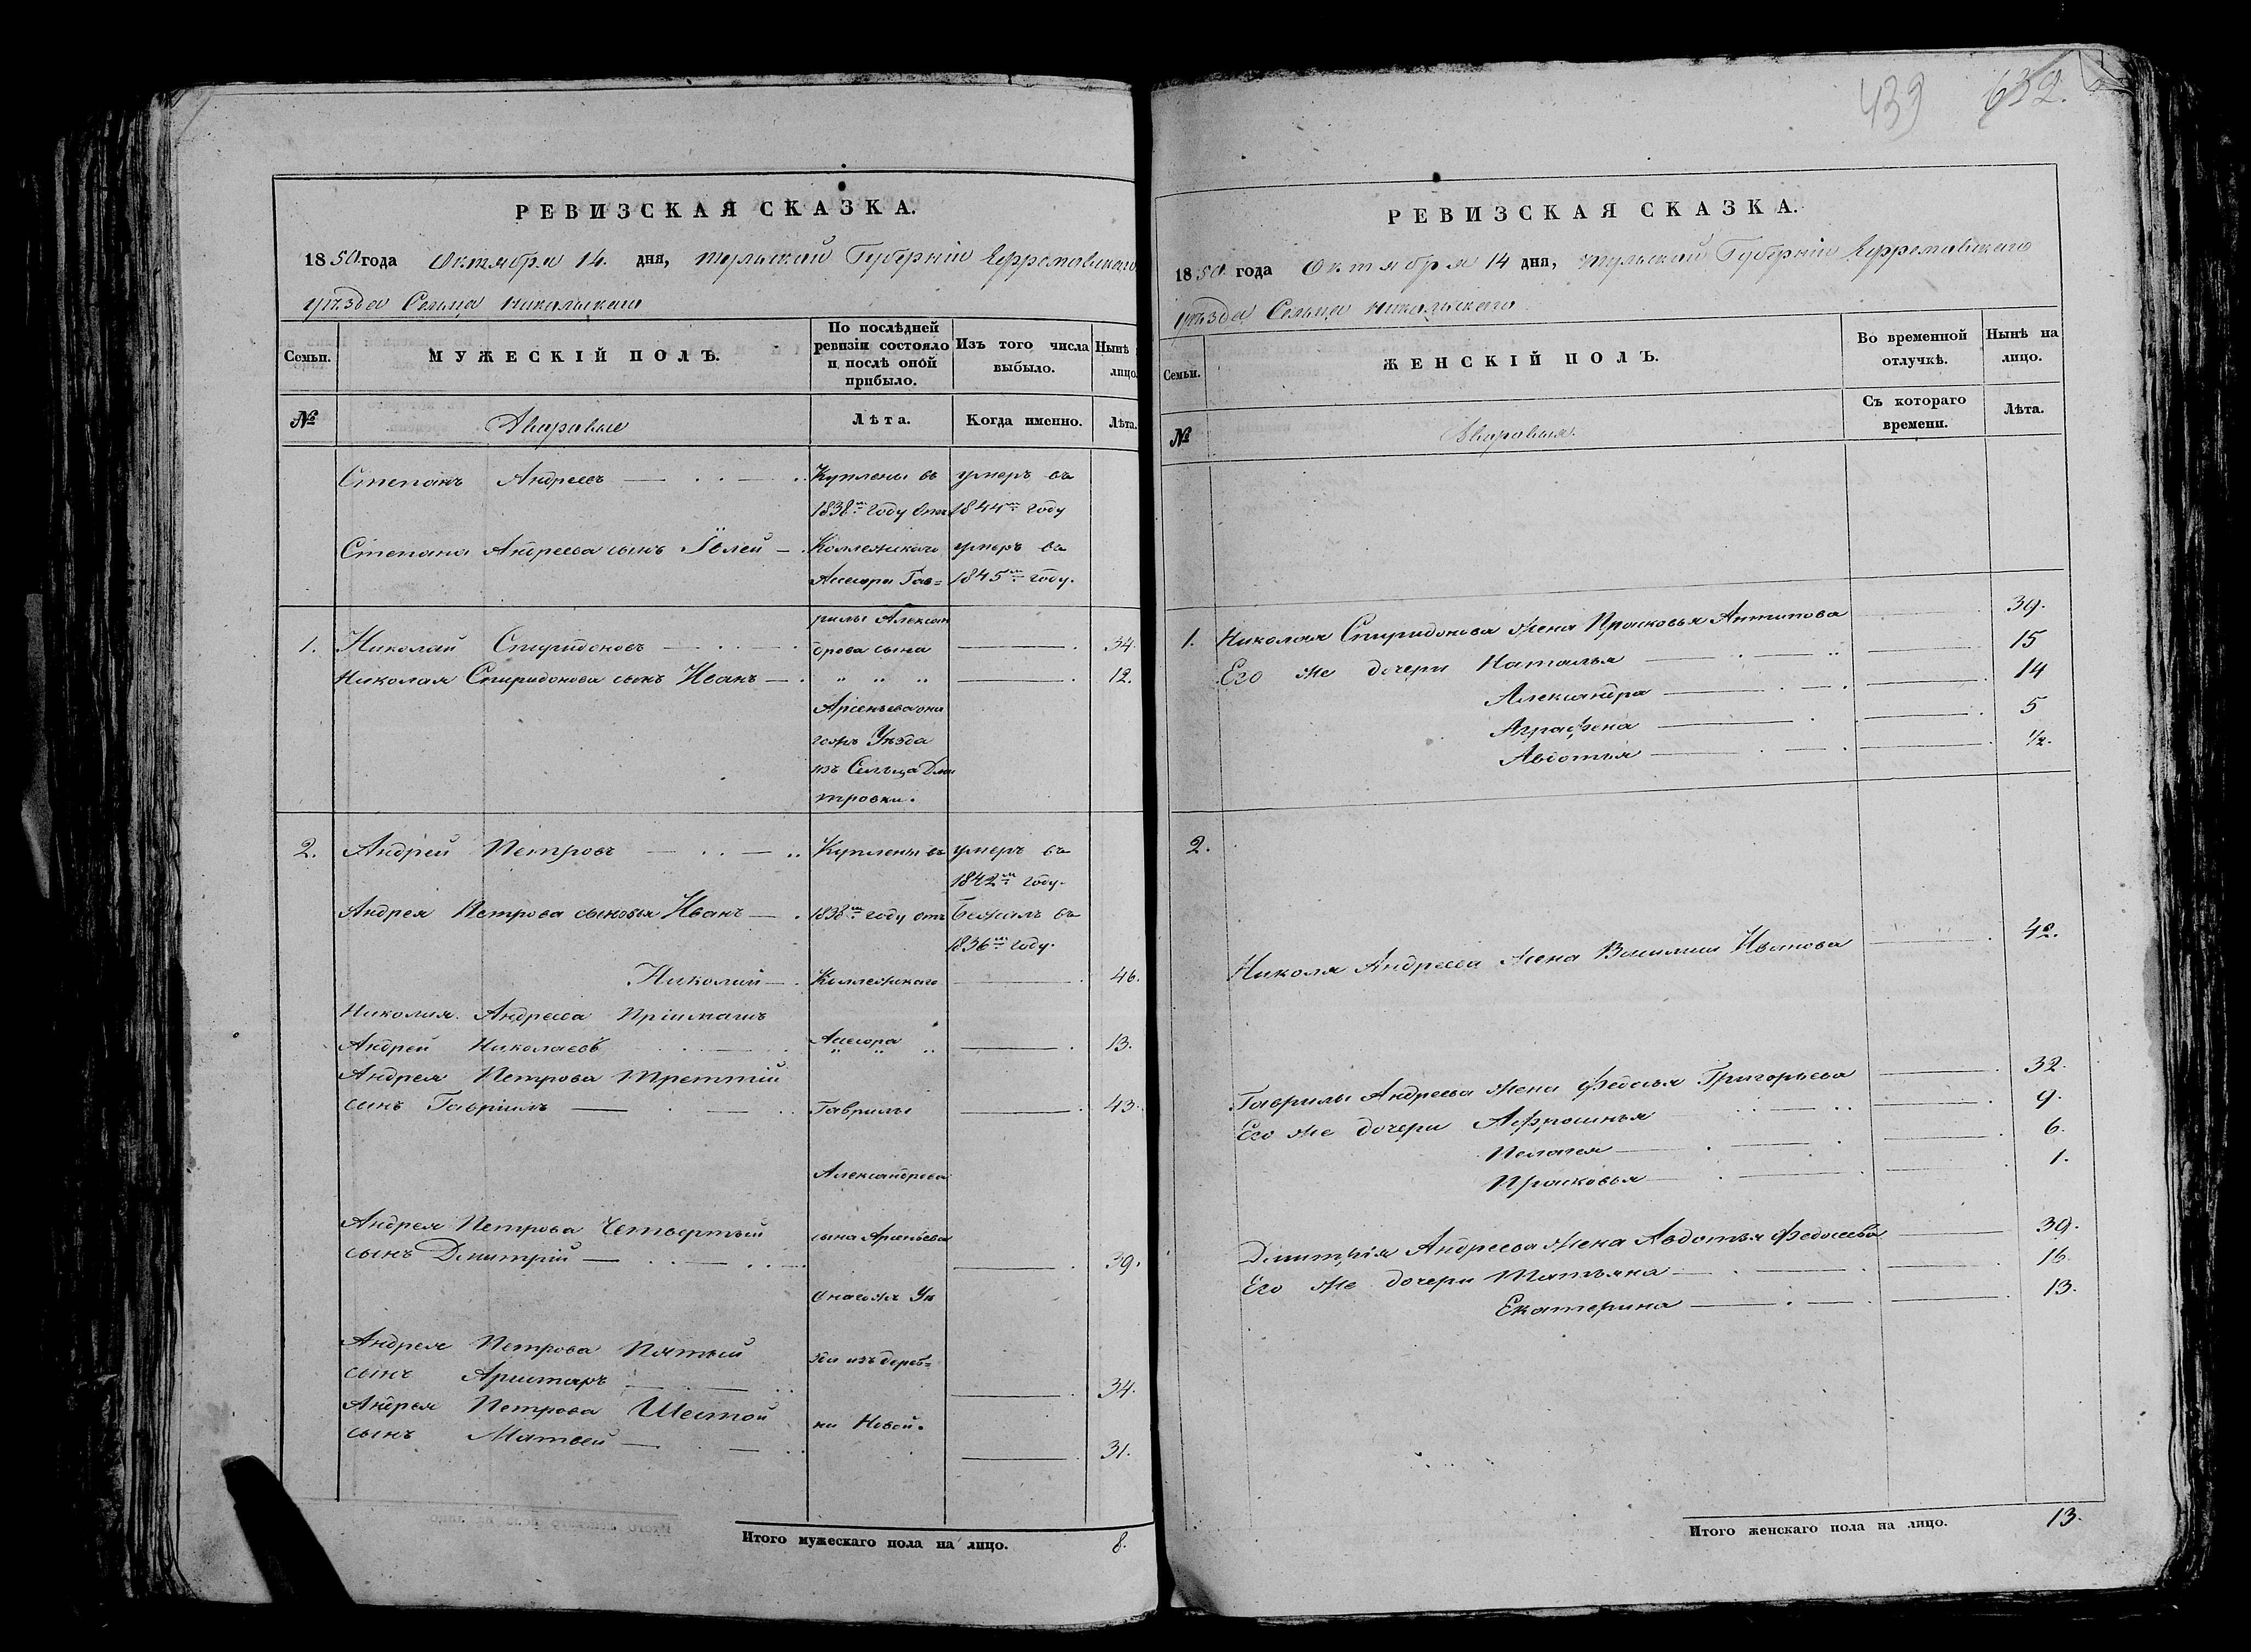 439 632.
РЕВИЗСКАЯ СКАЗКА.
1850 года Октября 14. дня, Тульской Губерніи Ефремовскаго
уѣзда Сельца Никольскаго
Семьи. МУЖЕСКІЙ ПОЛЪ. По послѣдней ревизіи состояло и послѣ оной прибыло. Изъ того числа выбыло. Нынѣ лицо.
№ Дворовые Лѣта. Когда именно. Лѣта.
Степанъ Андреевъ Куплены въ умеръ въ
1838мъ году отъ 1844мъ году
Степана Андреева сынъ Коллежскаго умеръ въ
Асесора Гав= 1845мъ году.
рилы Алексан
1. Николай Спиридоновъ дрова сына 34.
Николая Спиридонова сынъ Иванъ " " " 12.
Арсеньева она
гожъ Уѣзда
изъ Сельца Дми
тровки.
2. Андрей Петровъ Куплены въ умеръ въ
1842мъ году.
Андрея Петрова сыновья Иванъ 1838мъ году отъ Бежалъ въ
1836мъ году.
Николай Коллежскаго 46.
Николая Андреева Пріимышъ
Андрей Николаевъ Асесора " " " 13.
Андрея Петрова Третій
сынъ Гаврилъ Гаврилы 43.
Александрова
Андрея Петрова Четвертый сына Арсеньева
сынъ Дмитрій 39.
Онагожъ Уѣ
Андрея Петрова Пятый зда изъ дерев=
сынъ 34.
Андрея Петрова Шестой ни Новой.
сынъ Матвей 31.
Итого мужескаго пола на лицо. 8.
РЕВИЗСКАЯ СКАЗКА.
1850 года Октября 14 дня, Тульской Губерніи Ефремовскаго
уѣзда Сельца Никольскаго
Семьи. ЖЕНСКІЙ ПОЛЪ. Во временной отлучкѣ. Нынѣ на лицо.
№ Дворовыя. Съ котораго времени. Лѣта.
1. Николая Спиридонова жена Прасковья Антипова 39.
Его же дочери Наталья 15
Александра 14
Аграфена 5
Авдотья 1/2.
2.
Николя Андреева жена Иванова 42.
Гаврилы Андреева жена Федосья Григорьева 32.
Его же дочери Афросинья 9.
Пелагея 6.
Прасковья 1.
Дмитрія Андреева жена Авдотья Федосеева 39.
Его же дочери Татьяна 16.
Екатерина 13.
Итого женскаго пола на лицо. 13.